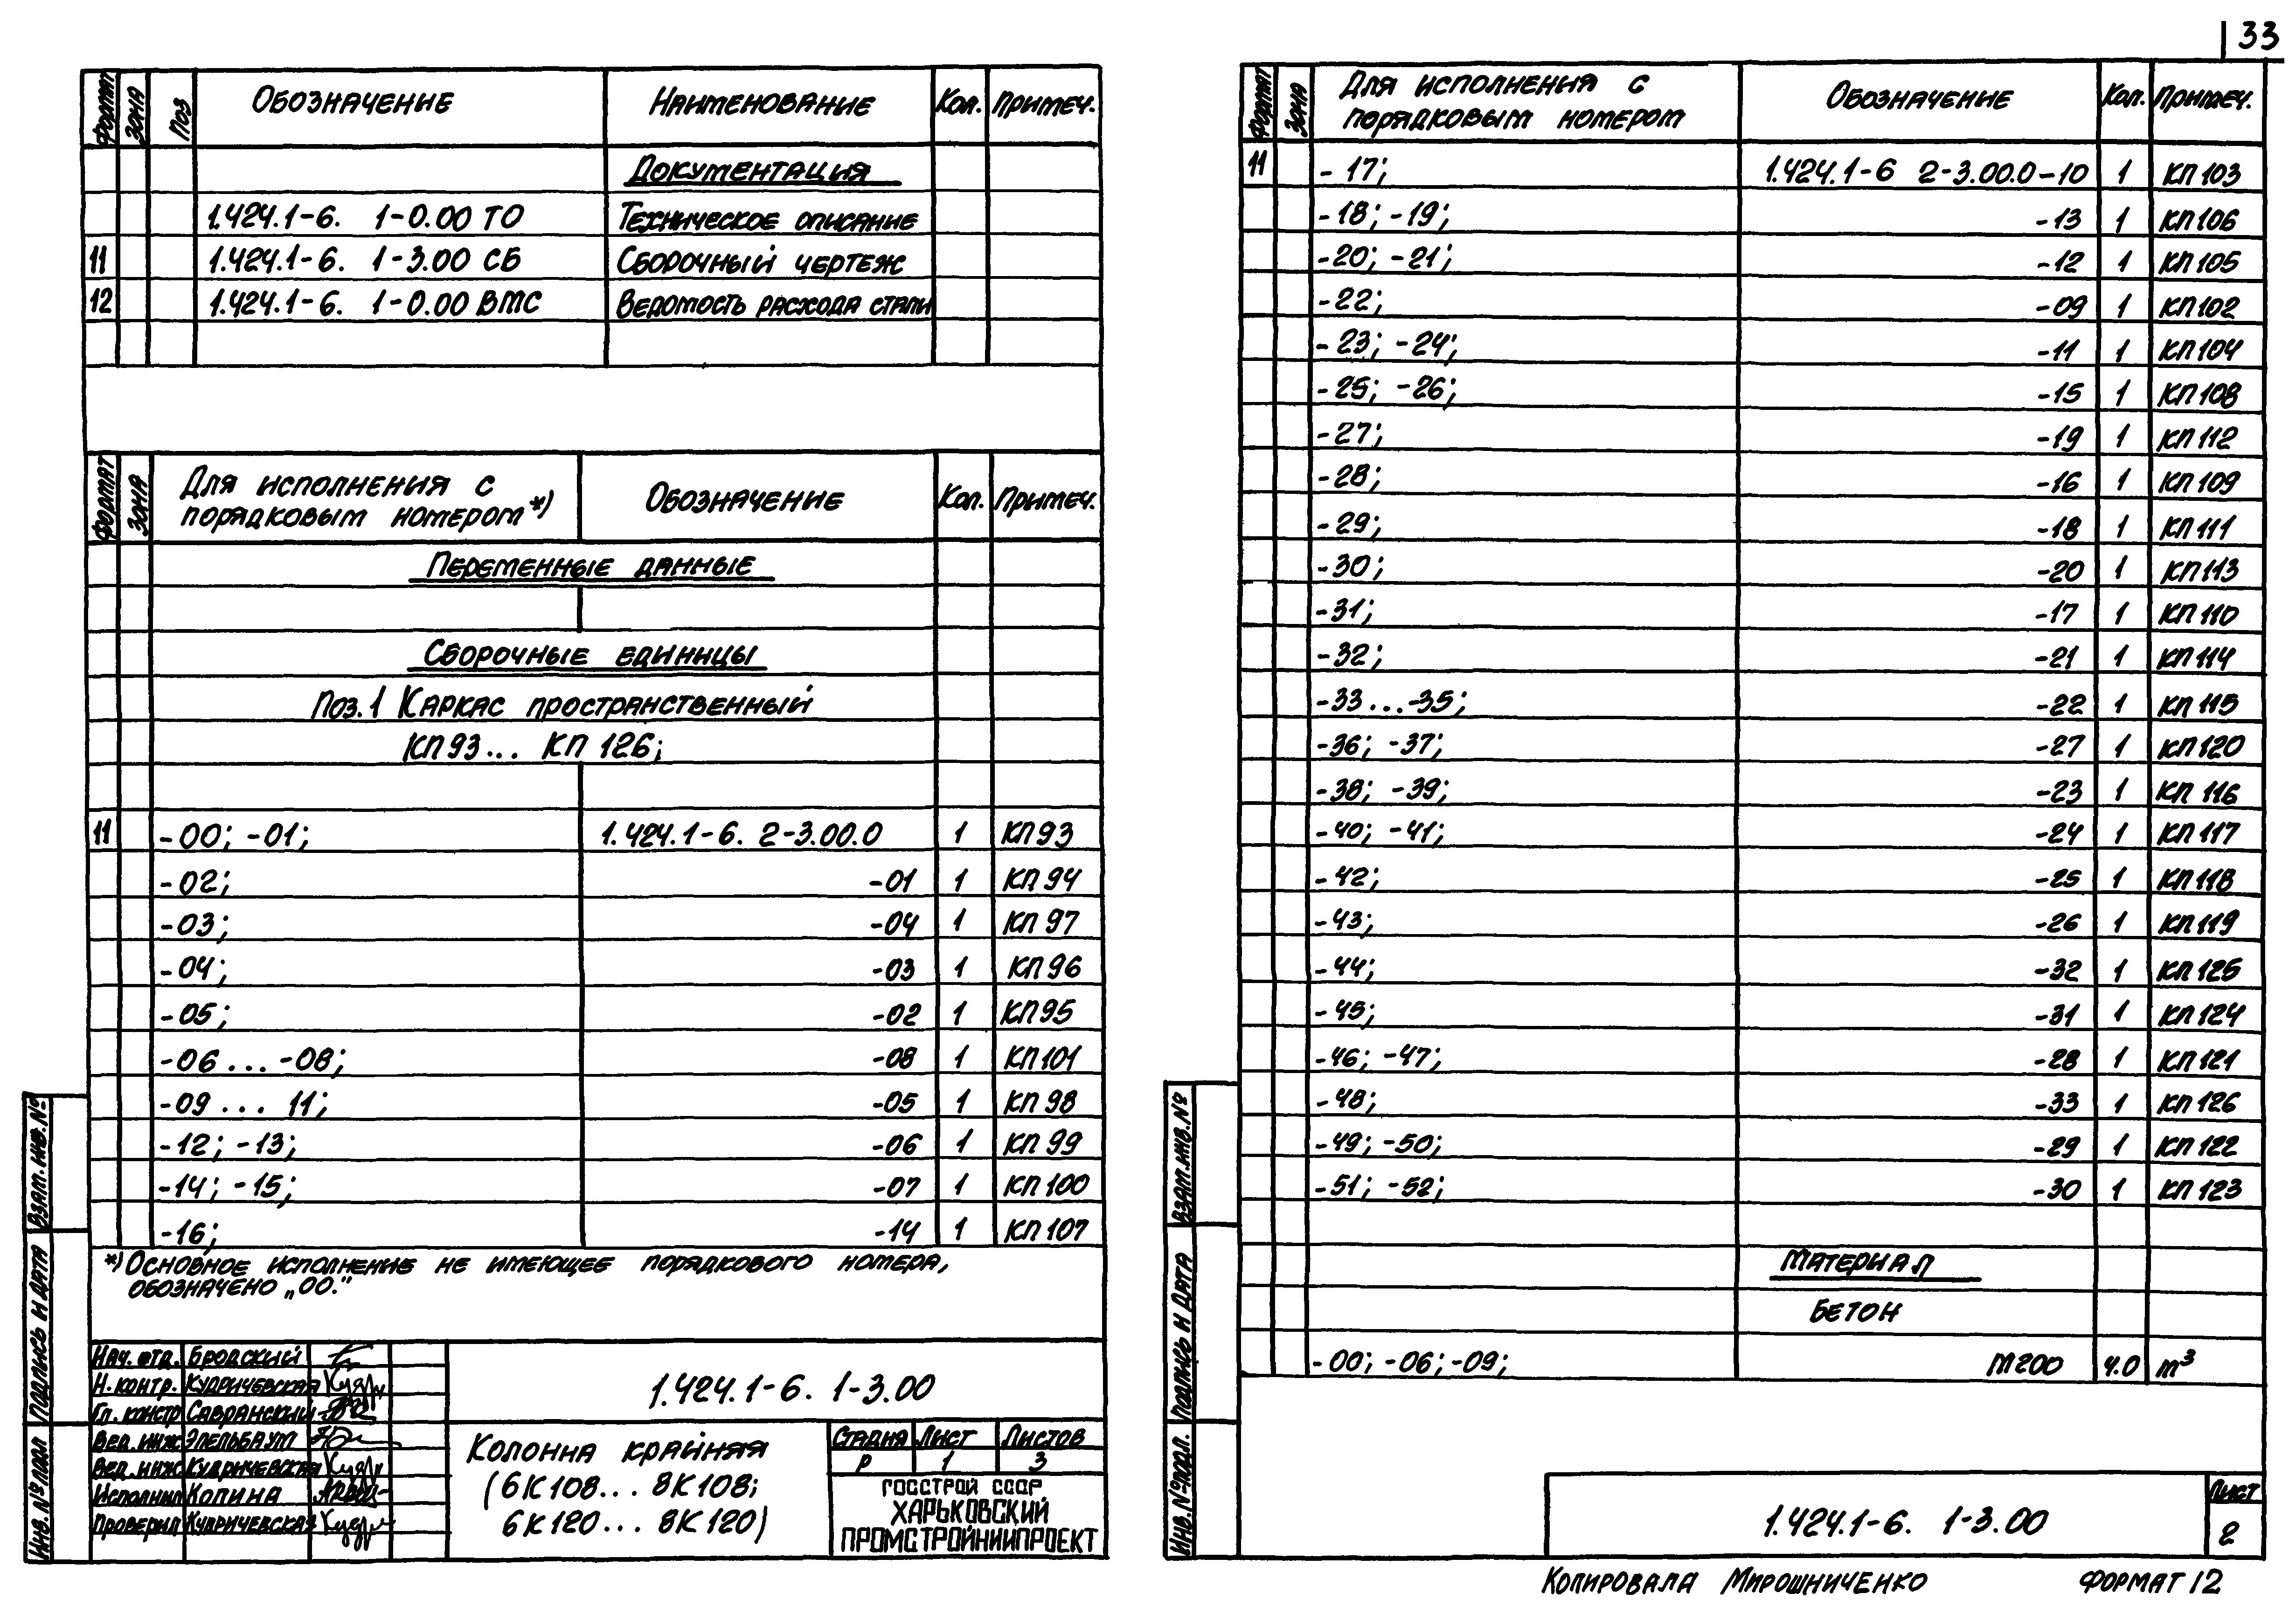 33
Формат Зона Поз Обозначение Наименование Кол. Примеч.
Документация
1.424.1-6. 1-0.00 ТО Техническое описание
11 1.424.1-6. 1-3.00 СБ Сборочный чертеж
12 1.424.1-6. 1-0.00 ВМС Ведомость расхода стали
Формат Зона Для исполнения с порядковым номером*) Обозначение Кол. Примеч.
Переменные данные
Сборочные единицы
Поз.1 Каркас пространственный
КП93... КП 126;
11 -00; -01; 1.424.1-6. 2-3.00.0 1 КП93
-02; -01 1 КП 94
-03; -04 1 КП 97
-04; -03 1 КП 96
-05; -02 1 КП95
-06...-08; -08 1 КП101
-09... 11; -05 1 КП 98
-12; -13; -06 1 КП 99
-14; -15; -07 1 КП 100
-16; -14 1 КП 107
*) Основное исполнение не имеющее порядкового номера,
обозначено „00."
Нач. отд. Бродский
Н. контр. Кудричевская
Гл. констр Савранский
Вед. инж Эпельбаум
Вед. инж Кудричевская
Исполнил Копина
Проверил Кудричевская
1.424.1-6. 1-3.00
Колонна крайняя
(6К108... 8К108;
6К120... 8К120)
Стадия Лист Листов
Р 1 3
ГОССТРОЙ СССР
ХАРЬКОВСКИЙ
ПРОМСТРОЙНИИПРОЕКТ
Взам. инв. №
Подпись и дата
Инв. № подл
Формат Зона Для исполнения с порядковым номером Обозначение Кол. Примеч.
11 -17; 1.424.1-6 2-3.00.0-10 1 КП103
-18; -19; -13 1 КП106
-20; -21; -12 1 КП105
-22; -09 1 КП102
-23; -24; -11 1 КП104
-25; -26; -15 1 КП108
-27; -19 1 КП112
-28; -16 1 КП109
-29; -18 1 КП111
-30; -20 1 КП113
-31; -17 1 КП110
-32; -21 1 КП114
-33...-35; -22 1 КП115
-36; -37; -27 1 КП120
-38; -39; -23 1 КП 116
-40; -41; -24 1 КП 117
-42; -25 1 КП118
-43; -26 1 КП119
-44; -32 1 КП125
-45; -31 1 КП124
-46; -47; -28 1 КП121
-48; -33 1 КП126
-49; -50; -29 1 КП 122
-51; -52; -30 1 КП 123
Материал
Бетон
-00; -06; -09; М200 4.0 м³
Взам. инв. №
Подпись и дата
Инв. № подл.
1.424.1-6. 1-3.00
Лист
2
Копировала Мирошниченко Формат 12